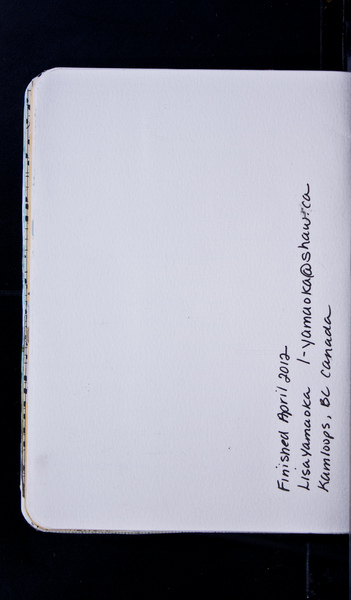 Finished April 2012
Lisa Yamaoka   l-yamaoka@shaw.ca
Kamloops, BC Canada